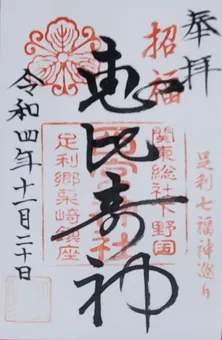 奉拝
足利七福神巡り
招福
関東総社下野国
西宮神社
足利郷栗崎鎮座
恵比寿神
令和四年十一月二十日